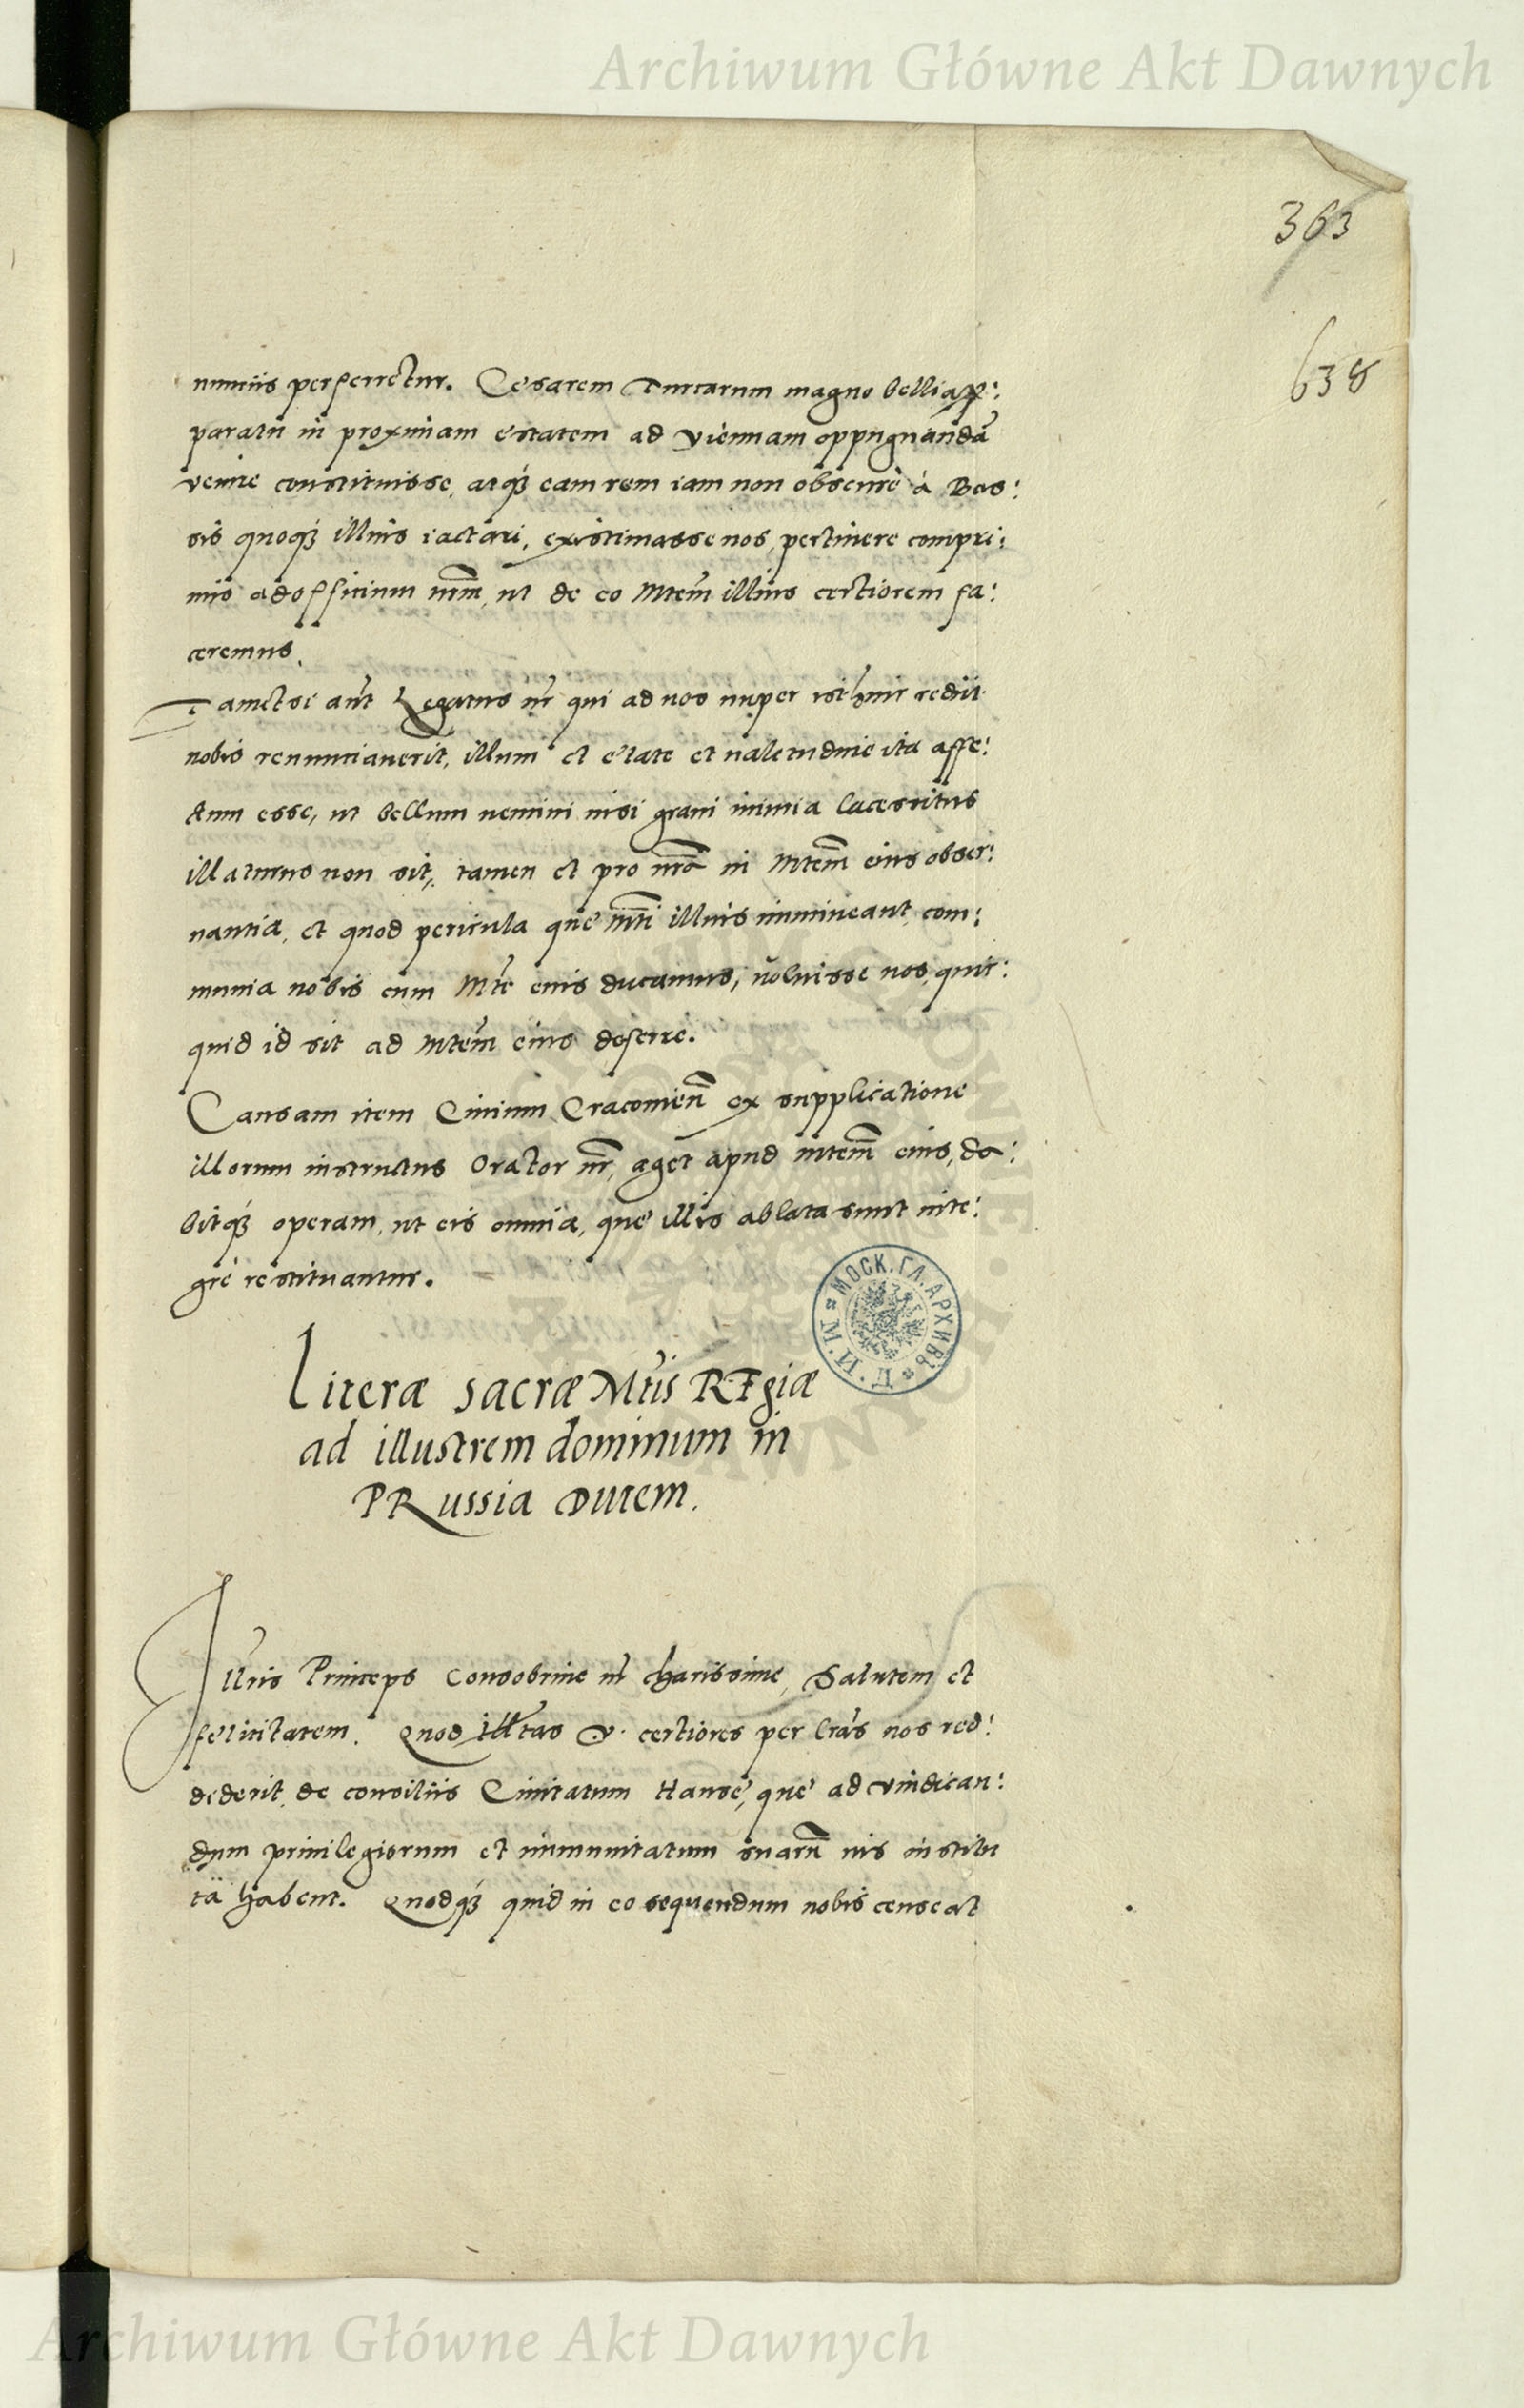 Archiwum Główne Akt Dawnych
363
638
nunciis perferretur. Cesarem Turcarum magno belli ap:
paratu in proximam estatem ad viennam oppugnandã
venire constituisse, atq́ꝫ eam rem iam non obscurè à Bas:
sis quoq́ꝫ illius iactari, existimasse nos, pertinere compri:
mis ad officium nr̃m, ut de eo Mtem̃ illius certiorem fa:
ceremus.
Tametsi aũt Legatus nr̃ qui ad nos nuper isthinc rediit
nobis renunciauerit, illum et etate et ualetudine ita affe:
ctum esse, ut bellum nemini nisi graui iniuria lacessitus
illaturus non sit, tamen et pro nr̃a in Mtem̃ eius obser:
uantia, et quod pericula que Mti illius immineant, com:
munia nobis cum Mte eius ducamus, uoluisse nos, quic:
quid id sit ad Mtem̃ eius deferre.
Causam item Ciuium Cracouien̄ ex supplicatione
illorum instructus Orator nr̃, aget apud Mtem̃ eius, da:
bitq́ꝫ operam, ut eis omnia, que illis ablata sunt inte:
grè restituantur.
МОСК. ГЛ. АРХИВЪ
М. И. Д.
Literæ sacræ Mtis REgiæ
ad illustrem dominum in
PRussia Ducem.
Illris Princeps Consobrine nr̃ charissime, Salutem et
felicitatem. Quod Illtas V. certiores per lrãs nos red:
dederit, de consiliis Ciuitatum Hanse, que ad vindican:
dum priuilegiorum et immunitatum suarũ ius institu
ta habent. Quodq́ꝫ quid in eo sequendum nobis censeat
Archiwum Główne Akt Dawnych